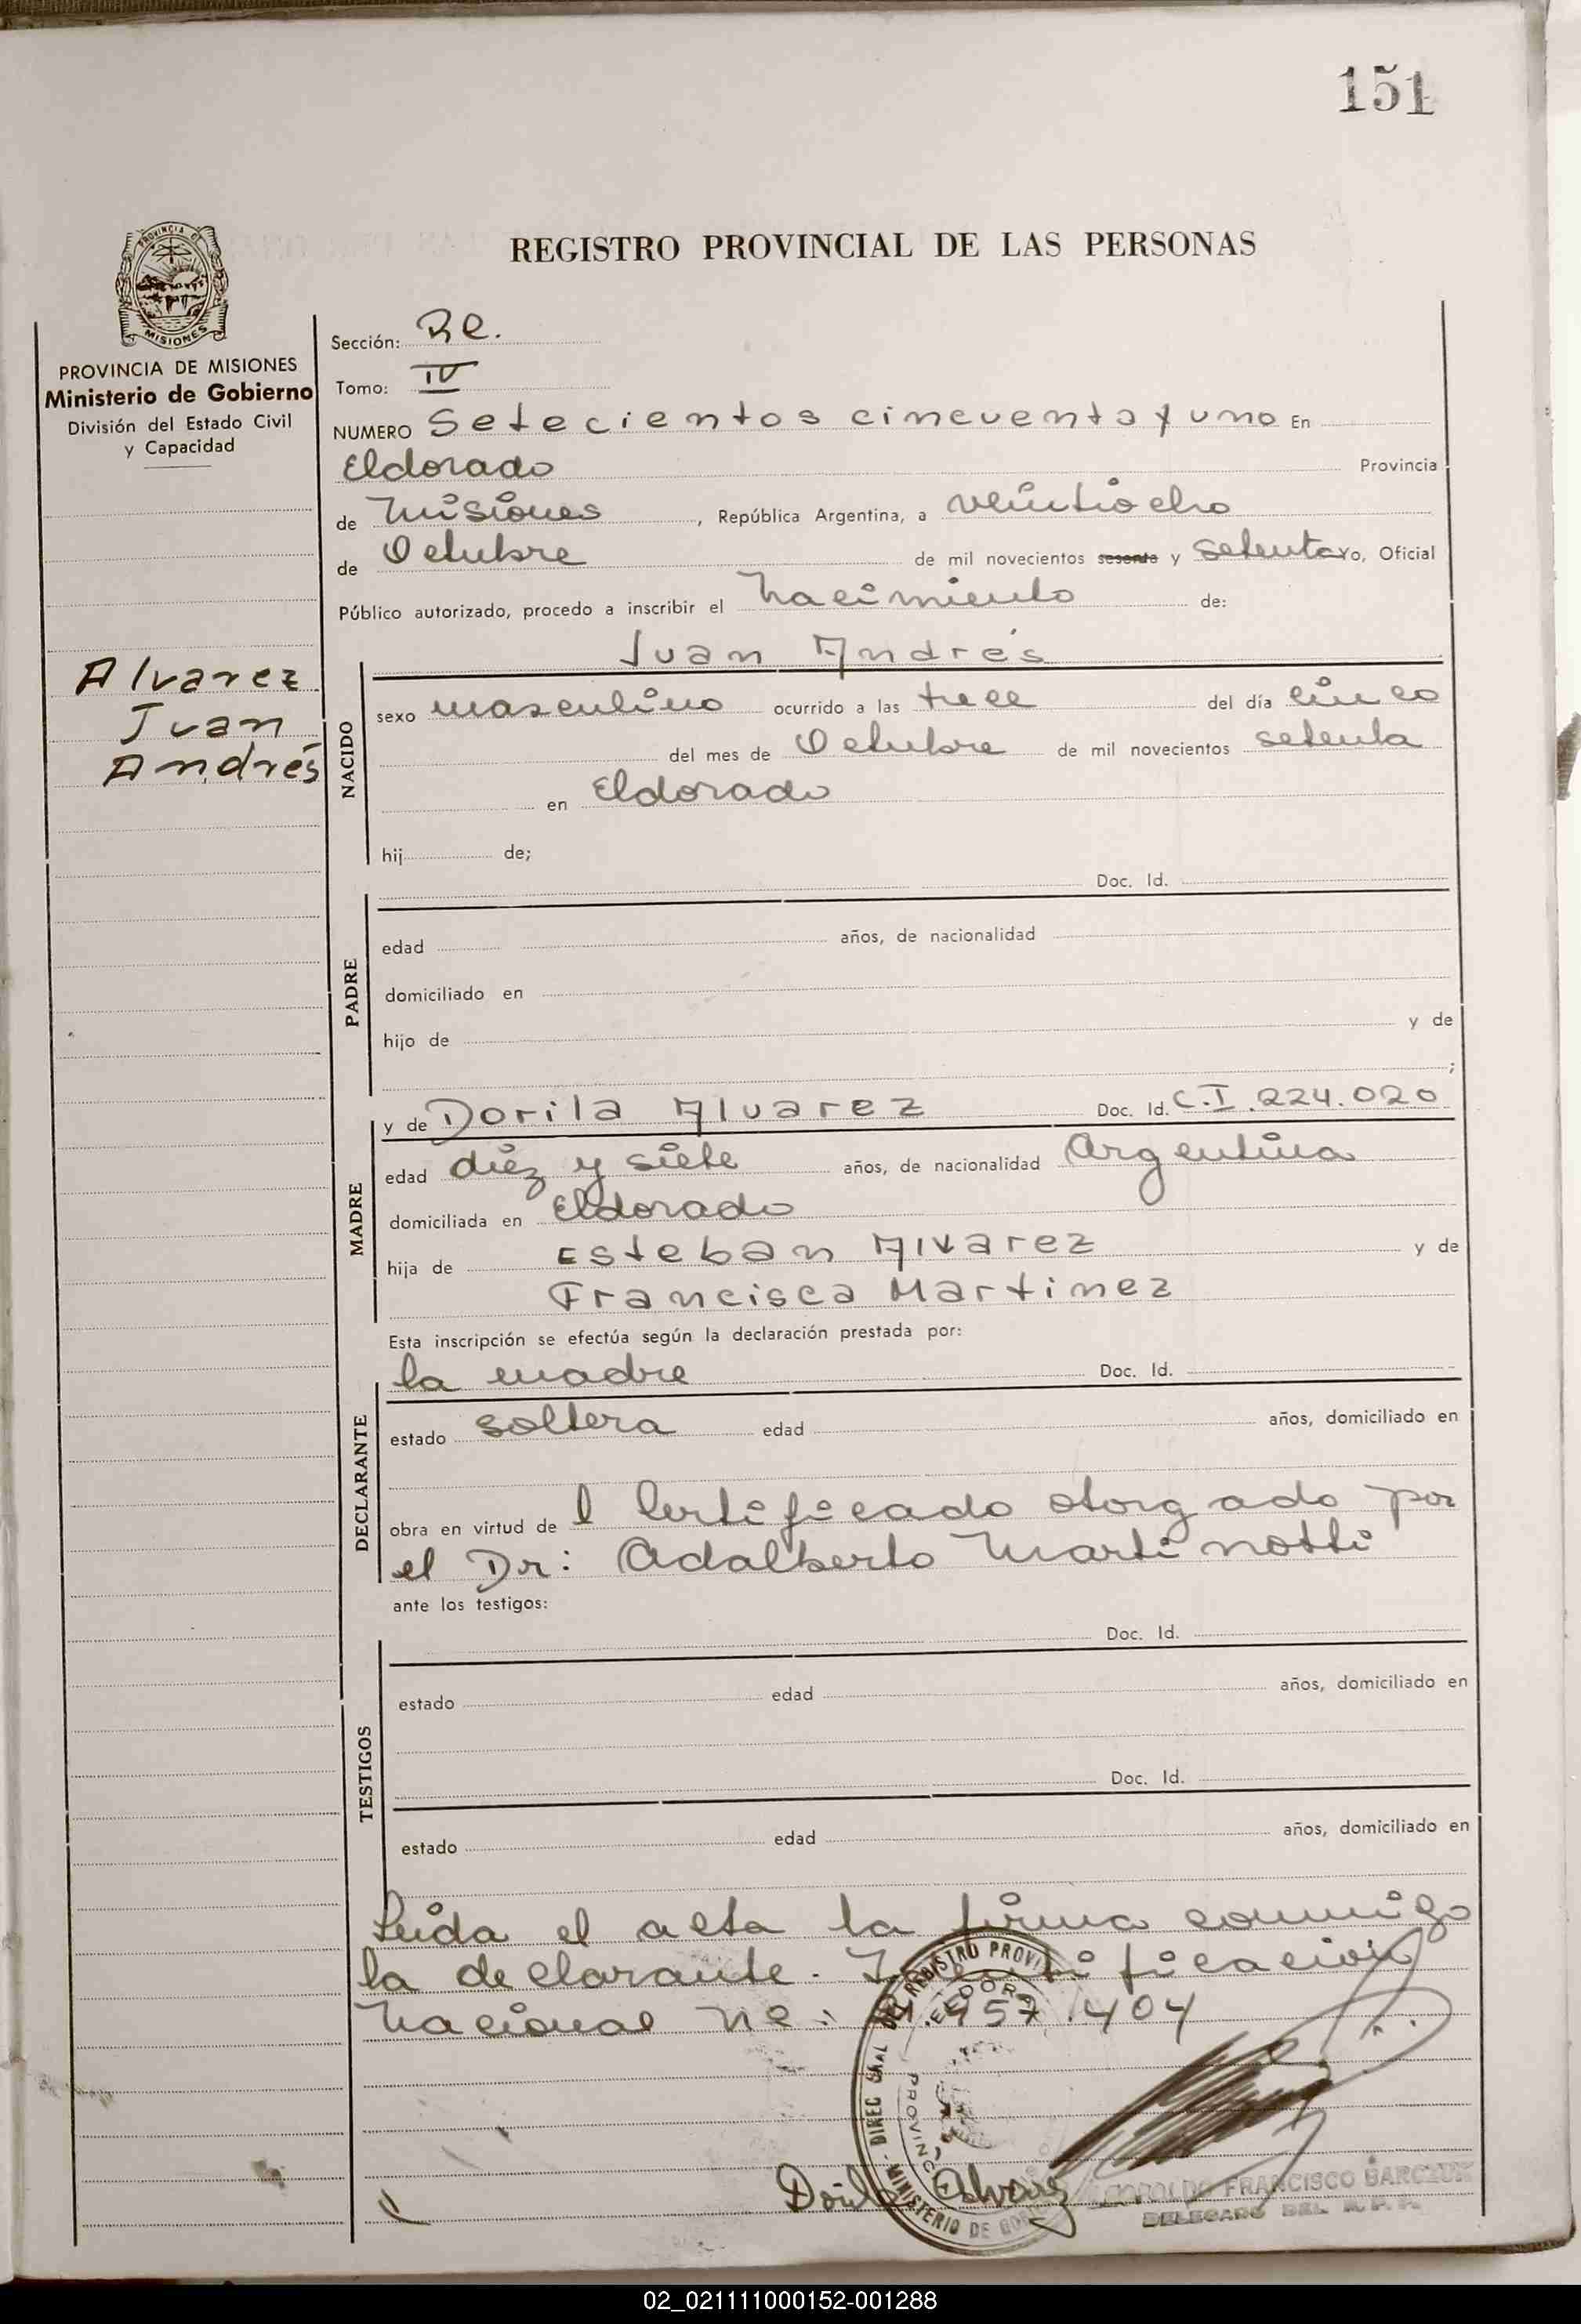 151
PROVINCIA DE MISIONES
REGISTRO PROVINCIAL DE LAS PERSONAS
PROVINCIA DE MISIONES
Ministerio de Gobierno
División del Estado Civil
y Capacidad
Alvarez
Juan
Andrés
Sección:
Tomo: IV
NUMERO Setecientos cincuenta y uno En
Eldorado Provincia
de Misiones, República Argentina, a veintiocho
de Octubre de mil novecientos sesenta y setenta yo, Oficial
Público autorizado, procedo a inscribir el Nacimiento de:
Juan Andrés
NACIDO
sexo masculino ocurrido a las trece del día cinco
del mes de Octubre de mil novecientos setenta
en Eldorado
hij de;
Doc. Id.
PADRE
edad años, de nacionalidad
domiciliado en
hijo de y de
;
MADRE
y de Dorila Alvarez Doc. Id. C.I. 224.020
edad diez y siete años, de nacionalidad Argentina
domiciliada en Eldorado
hija de Esteban Alvarez y de
Francisca Martinez
Esta inscripción se efectúa según la declaración prestada por:
DECLARANTE
la madre Doc. Id.
estado soltera edad años, domiciliado en
obra en virtud de l Certificado otorgado por
el Dr: Adalberto Martinotti
ante los testigos:
TESTIGOS
Doc. Id.
estado edad años, domiciliado en
Doc. Id.
estado edad años, domiciliado en
Leida el acta la firma conmigo
la declarante. Identificación
Nacional No: 957.404
DIREC GRAL DEL REGISTRO PROVIN
ELDORA
PROVINC
MINISTERIO DE GO
Dorila Alvarez
LEOPOLDO FRANCISCO
DELEGADO DEL R.P.P.
02_021111000152-001288